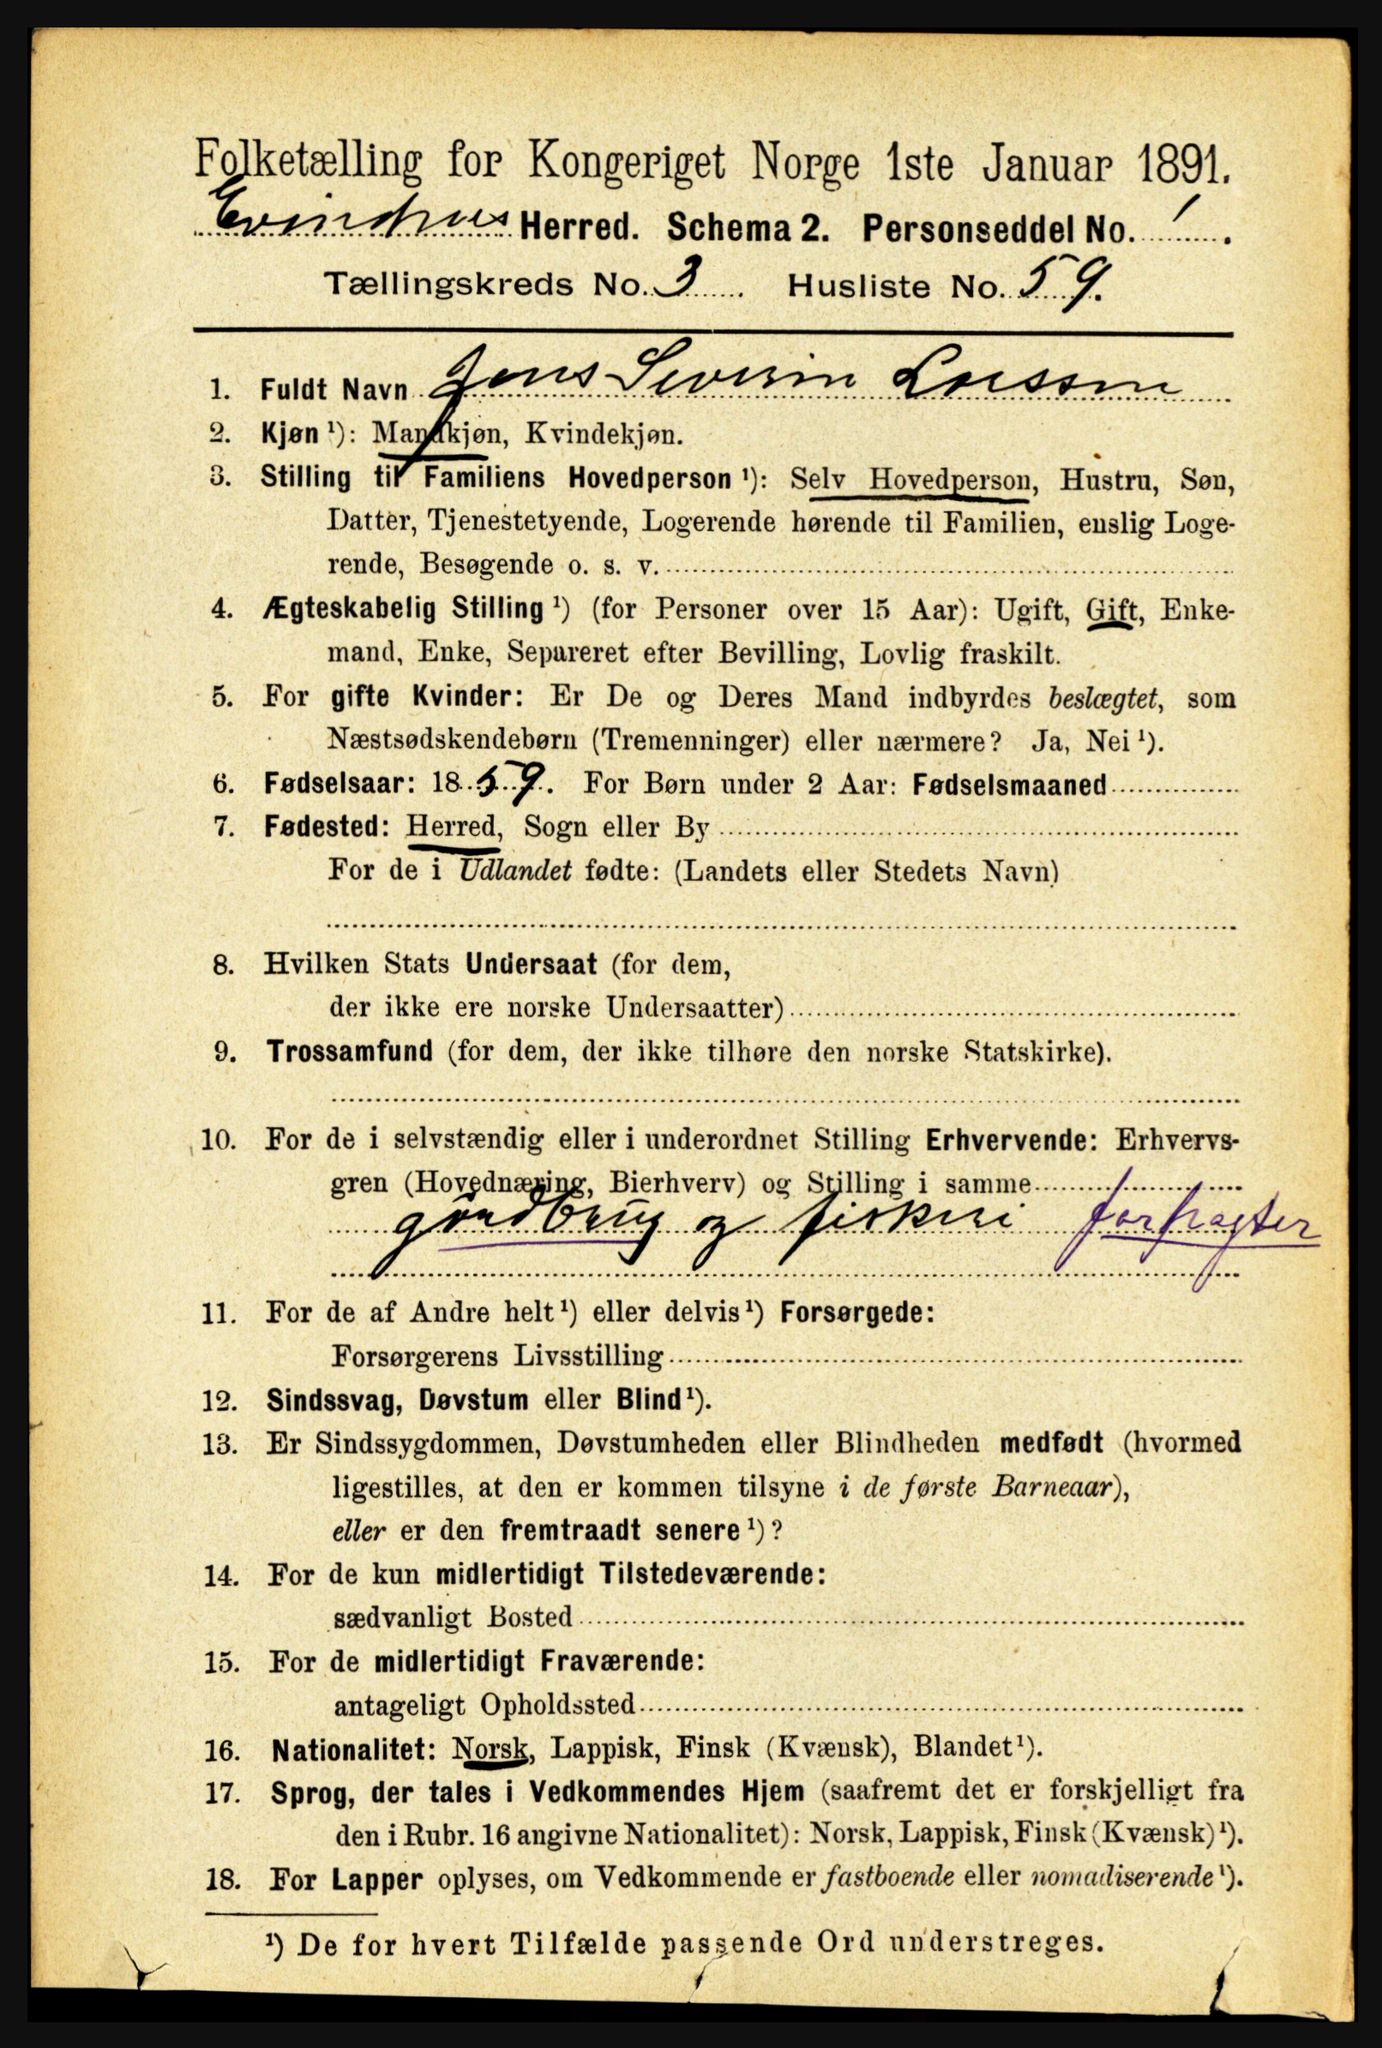 Folketælling for Kongeriget Norge 1ste Januar 1891.
Evindvig Herred. Schema 2. Personseddel No. 1.
Tællingskreds No. 3. Husliste No. 59.
1. Fuldt Navn Jens Severin Larssen
2. Kjøn ¹): Mandkjøn, Kvindekjøn.
3. Stilling til Familiens Hovedperson ¹): Selv Hovedperson, Hustru, Søn,
Datter, Tjenestetyende, Logerende hørende til Familien, enslig Loge-
rende, Besøgende o. s. v.
4. Ægteskabelig Stilling ¹) (for Personer over 15 Aar): Ugift, Gift, Enke-
mand, Enke, Separeret efter Bevilling, Lovlig fraskilt.
5. For gifte Kvinder: Er De og Deres Mand indbyrdes beslægtet, som
Næstsødskendebørn (Tremenninger) eller nærmere? Ja, Nei ¹).
6. Fødselsaar: 1859. For Børn under 2 Aar: Fødselsmaaned
7. Fødested: Herred, Sogn eller By
For de i Udlandet fødte: (Landets eller Stedets Navn)
8. Hvilken Stats Undersaat (for dem,
der ikke ere norske Undersaatter)
9. Trossamfund (for dem, der ikke tilhøre den norske Statskirke).
10. For de i selvstændig eller i underordnet Stilling Erhvervende: Erhvervs-
gren (Hovednæring, Bierhverv) og Stilling i samme
gårdbrug og fiskeri forpagter
11. For de af Andre helt ¹) eller delvis ¹) Forsørgede:
Forsørgerens Livsstilling
12. Sindssvag, Døvstum eller Blind ¹).
13. Er Sindssygdommen, Døvstumheden eller Blindheden medfødt (hvormed
ligestilles, at den er kommen tilsyne i de første Barneaar),
eller er den fremtraadt senere ¹)?
14. For de kun midlertidigt Tilstedeværende:
sædvanligt Bosted
15. For de midlertidigt Fraværende:
antageligt Opholdssted
16. Nationalitet: Norsk, Lappisk, Finsk (Kvænsk), Blandet ¹).
17. Sprog, der tales i Vedkommendes Hjem (saafremt det er forskjelligt fra
den i Rubr. 16 angivne Nationalitet): Norsk, Lappisk, Finsk (Kvænsk) ¹).
18. For Lapper oplyses, om Vedkommende er fastboende eller nomadiserende ¹).
¹) De for hvert Tilfælde passende Ord understreges.